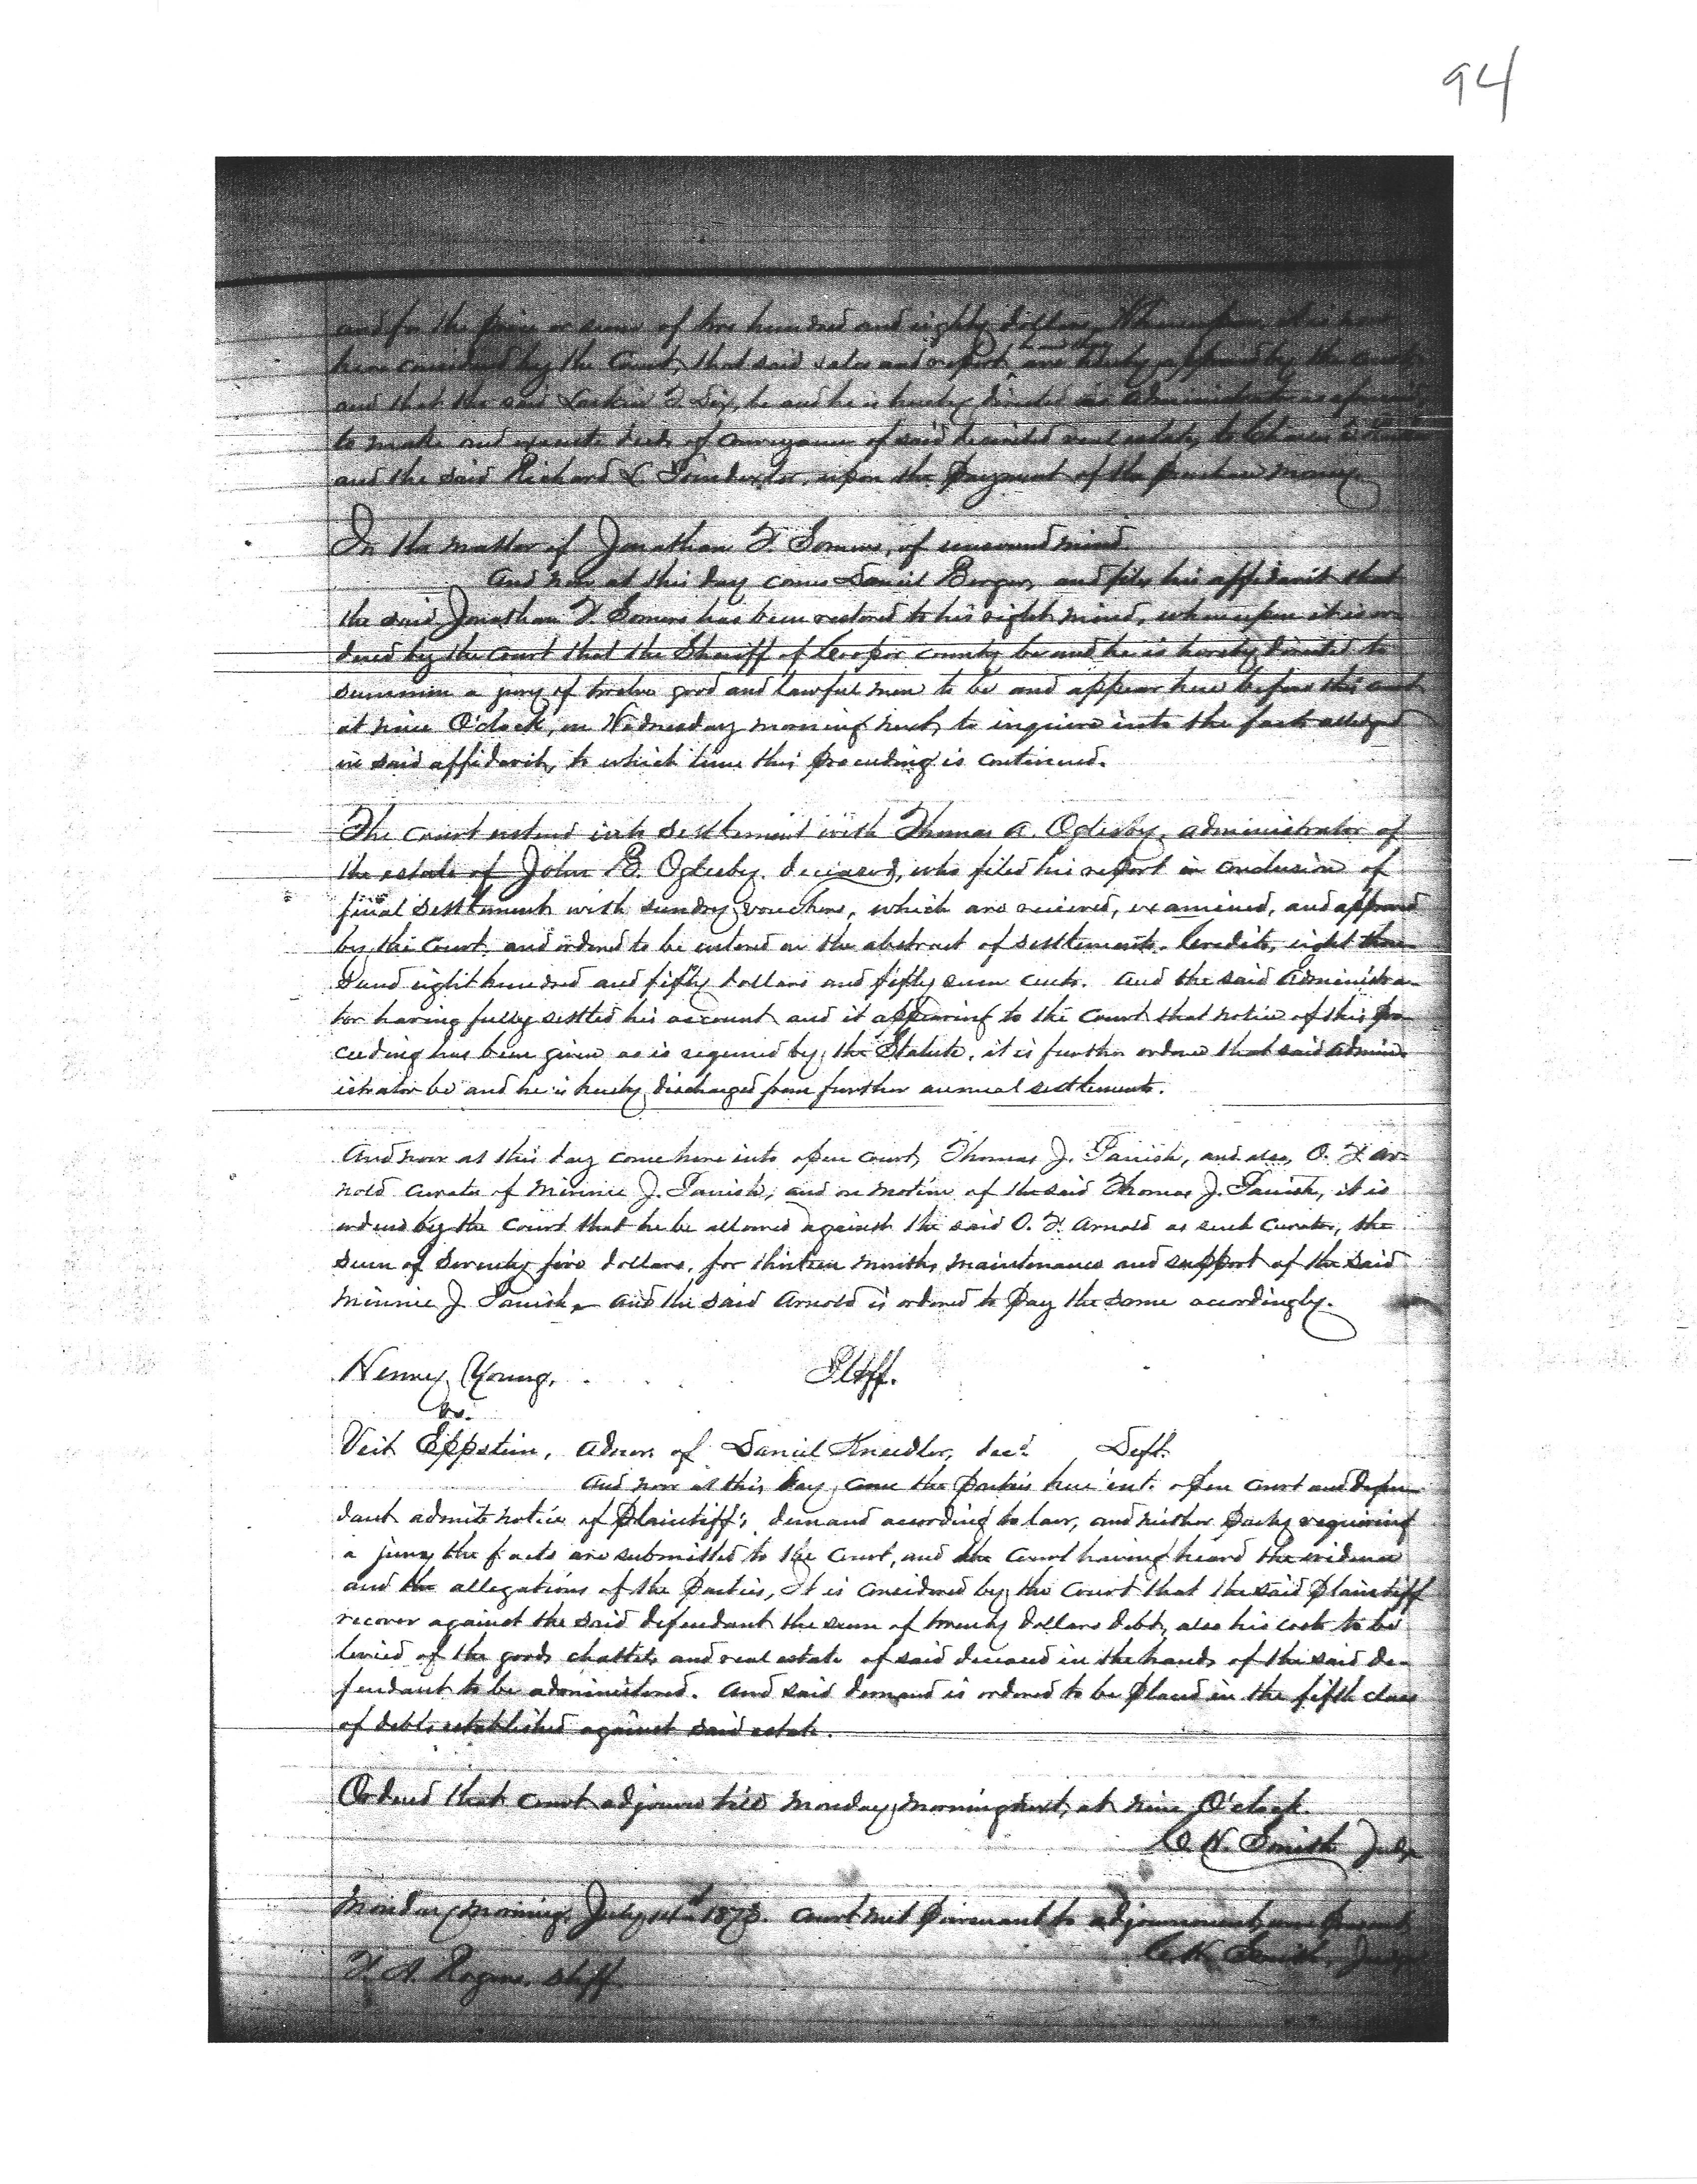 94
and for the price or sum of two hundred and eighty dollars, Whereupon it is now
here considered by the Court, that said sales and report, be and they are hereby approved by the Court
and that the said Larkin T. Dix, be and he is hereby directed as administrator as aforesaid
to make and execute deeds of conveyance of said described real estate, to
and the said Richard L. Poindexter, upon the payment of the purchase money.
In the matter of Jonathan F. Somers, of unsound mind.
And now at this day comes Daniel Berger, and files his affidavit that
the said Jonathan F. Somers has been restored to his right mind, whereupon it is or-
dered by the Court that the Sheriff of Cooper county be and he is hereby directed to
summon a jury of twelve good and lawful men to be and appear here before this court
at nine O'clock, on Wednesday morning next, to inquire into the facts alleged
in said affidavit, to which time this proceeding is continued.
The court entered into settlement with Thomas A. Oglesby, administrator of
the estate of John B. Oglesby, deceased, who filed his report in conclusion of
final settlement with sundry vouchers, which are recieved, examined, and approved
by the Court and ordered to be entered on the abstract of settlements. Credits, eight thou-
sand eight hundred and fifty dollars and fifty seven cents. And the said Administra-
tor having fully settled his account and it appearing to the Court that notice of this pro-
ceeding has been given as is required by the Statute, it is further ordered that said admin-
istrator be and he is hereby discharged from further annual settlements.
And now at this day come here into open court, Thomas J. Parrish, and also, O. F. Ar-
nold curator of Minnie J. Parrish, and on motion of the said Thomas J. Parrish, it is
ordered by the Court that he be allowed against the said O. F. Arnold as such curator, the
sum of seventy five dollars, for thirteen months, maintenance and support of the said
Minnie J. Parrish, and the said Arnold is ordered to pay the same accordingly.
Henry Young, Pltff.
vs.
Veit Eppstein, Admr. of Daniel Kneidler, decd. Deft.
And now at this day, come the parties here into open court and defen-
dant admits notice of Plaintiff's demand according to law, and neither party requiring
a jury the facts are submitted to the Court, and the Court having heard the evidence
and the allegations of the Parties, It is considered by the Court that the said Plaintiff
recover against the said defendant the sum of twenty dollars debt, also his costs to be
levied of the goods chattels and real estate of said deceased in the hands of the said de-
fendant to be administered. And said demand is ordered to be placed in the fifth class
of debts established against said estate.
Ordered that Court adjourn till Monday morning next, at nine O'clock.
C. H. Smith Judge
Monday morning, July 14th 1873. Court met pursuant to adjournment, Present
C. H. Smith, Judge
F. A. Rogers, Shff